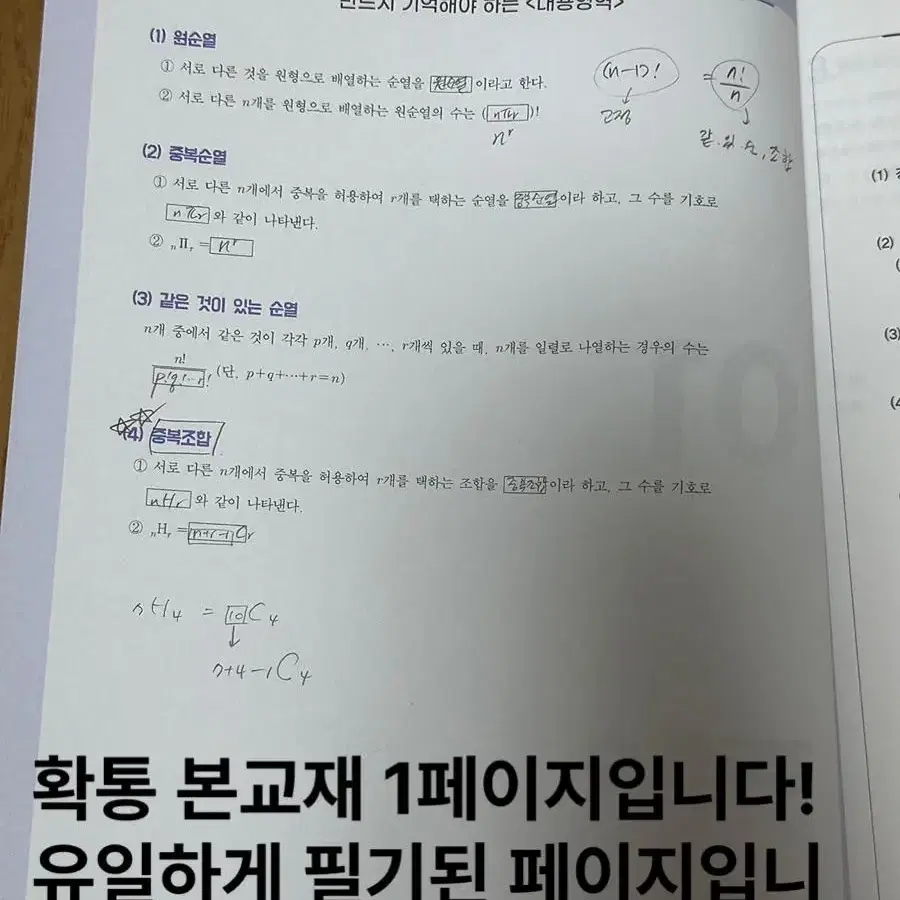 반드시 기억해야 하는 <내용영역>
(1) 원순열
① 서로 다른 것을 원형으로 배열하는 순열을 원순열 이라고 한다.
② 서로 다른 n개를 원형으로 배열하는 원순열의 수는 (nπr)!
nʳ
(n-1)! = n!/n
고정
같.있.순, 조합
(2) 중복순열
① 서로 다른 n개에서 중복을 허용하여 r개를 택하는 순열을 중복순열이라 하고, 그 수를 기호로
nπr 와 같이 나타낸다.
② ₙΠᵣ = nʳ
(3) 같은 것이 있는 순열
n개 중에서 같은 것이 각각 p개, q개, ⋯, r개씩 있을 때, n개를 일렬로 나열하는 경우의 수는
n!
p!q!⋯r! (단, p+q+⋯+r=n)
(4) 중복조합
① 서로 다른 n개에서 중복을 허용하여 r개를 택하는 조합을 중복조합이라 하고, 그 수를 기호로
nHr 와 같이 나타낸다.
② ₙHᵣ = n+r-1Cr
7H4 = 10C4
7+4-1C4
확통 본교재 1페이지입니다!
유일하게 필기된 페이지입니